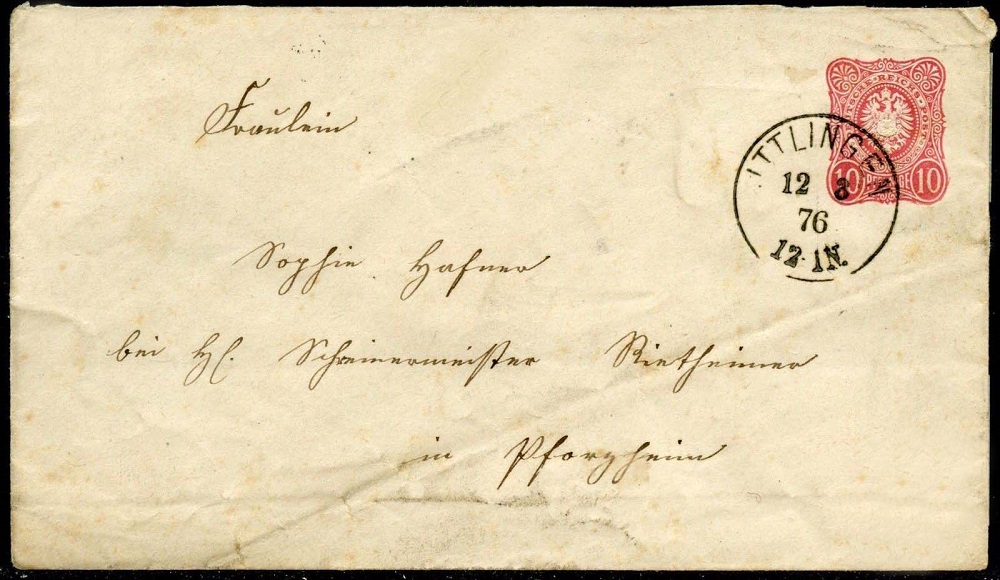 Fräulein
Sophie Hafner
bei H. Schreinermeister Rietheimer
in Pforzheim
ITTLINGEN
12 8
76
12-1N.
10 PFENNIGE 10